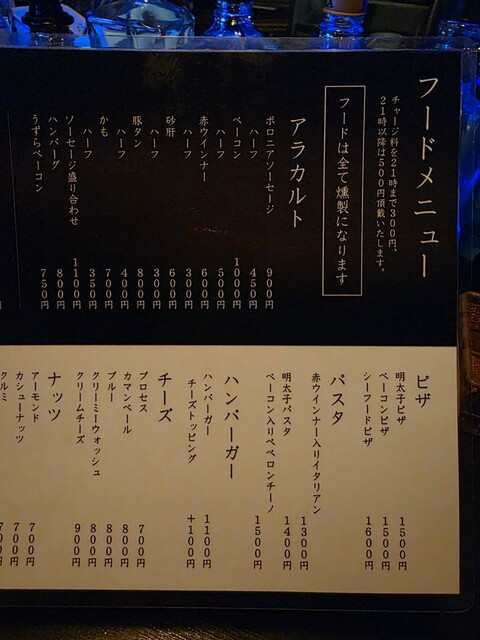 フードメニュー
チャージ料を21時まで300円、
21時以降は500円頂戴いたします。
フードは全て燻製になります
アラカルト
ボロニアソーセージ 900円
ハーフ 450円
ベーコン 1000円
ハーフ 500円
赤ウインナー 600円
ハーフ 300円
砂肝 600円
ハーフ 300円
豚タン 800円
ハーフ 400円
かも 700円
ハーフ 350円
ソーセージ盛り合わせ 1100円
ハンバーグ 800円
うずらベーコン 750円
ピザ
明太子ピザ 1500円
ベーコンピザ 1500円
シーフードピザ 1600円
パスタ
赤ウインナー入りイタリアン 1300円
明太子パスタ 1400円
ベーコン入りペペロンチーノ 1500円
ハンバーガー
ハンバーガー 1100円
チーズトッピング +100円
チーズ
プロセス 700円
カマンベール 800円
ブルー 800円
クリーミーウォッシュ 800円
クリームチーズ 900円
ナッツ
アーモンド 700円
カシューナッツ 700円
クルミ